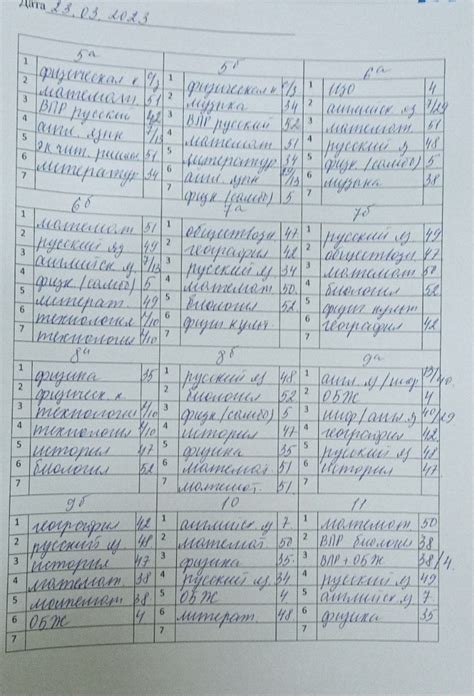 Дата 23.03.2023
5а
1 физическая к с/з
2 математ 51
3 ВПР русский 42
4 англ. язык 7/13
5 51
6 литератур 34
5б
1 физическая к с/з
2 музыка 34
3 ВПР русский 52
4 математ 51
5 литератур 34
6 англ. язык 29/13
7 физк (самбо) 5
6а
1 ИЗО 4
2 английск яз 7/29
3 математ 51
4 русский 48
5 физк (самбо) 5
6 музыка 38
7
6б
1 математ 51
2 русский яз 49
3 английск я 7/13
4 физк (самбо) 5
5 литерат. 49
6 технология 2/10
7 технология 2/10
7а
1 обществозн. 47
2 география 42
3 русский яз 34
4 математ 50
5 биология 52
6 физич культ.
7
7б
1 русский яз 49
2 обществозн 47
3 математ 50
4 биология 52
5 физич культ
6 география 42
7
8а
1 физика 35
2 физическ к
3 технология 2/10
4 технология 2/10
5 история 47
6 биология 52
7
8б
1 русский яз 48
2 биология 52
3 физк (самбо) 5
4 история 47
5 физика 35
6 математ. 51
7 математ. 51
9а
1 англ. я/инф 29/40
2 ОБЖ 4
3 инф/англ. я 40/29
4 география 42
5 русский яз 48
6 история 47
7
9б
1 география 42
2 русский яз 48
3 история 47
4 математ 38
5 математ 38
6 ОБЖ 4
7
10
1 английск я 7
2 математ 50
3 физика 35
4 русский яз 34
5 ОБЖ 4
6 литерат. 48
7
11
1 математ 50
2 ВПР биология 38
3 ВПР+ОБЖ 38/4
4 русский яз 49
5 английск я 7
6 физика 35
7